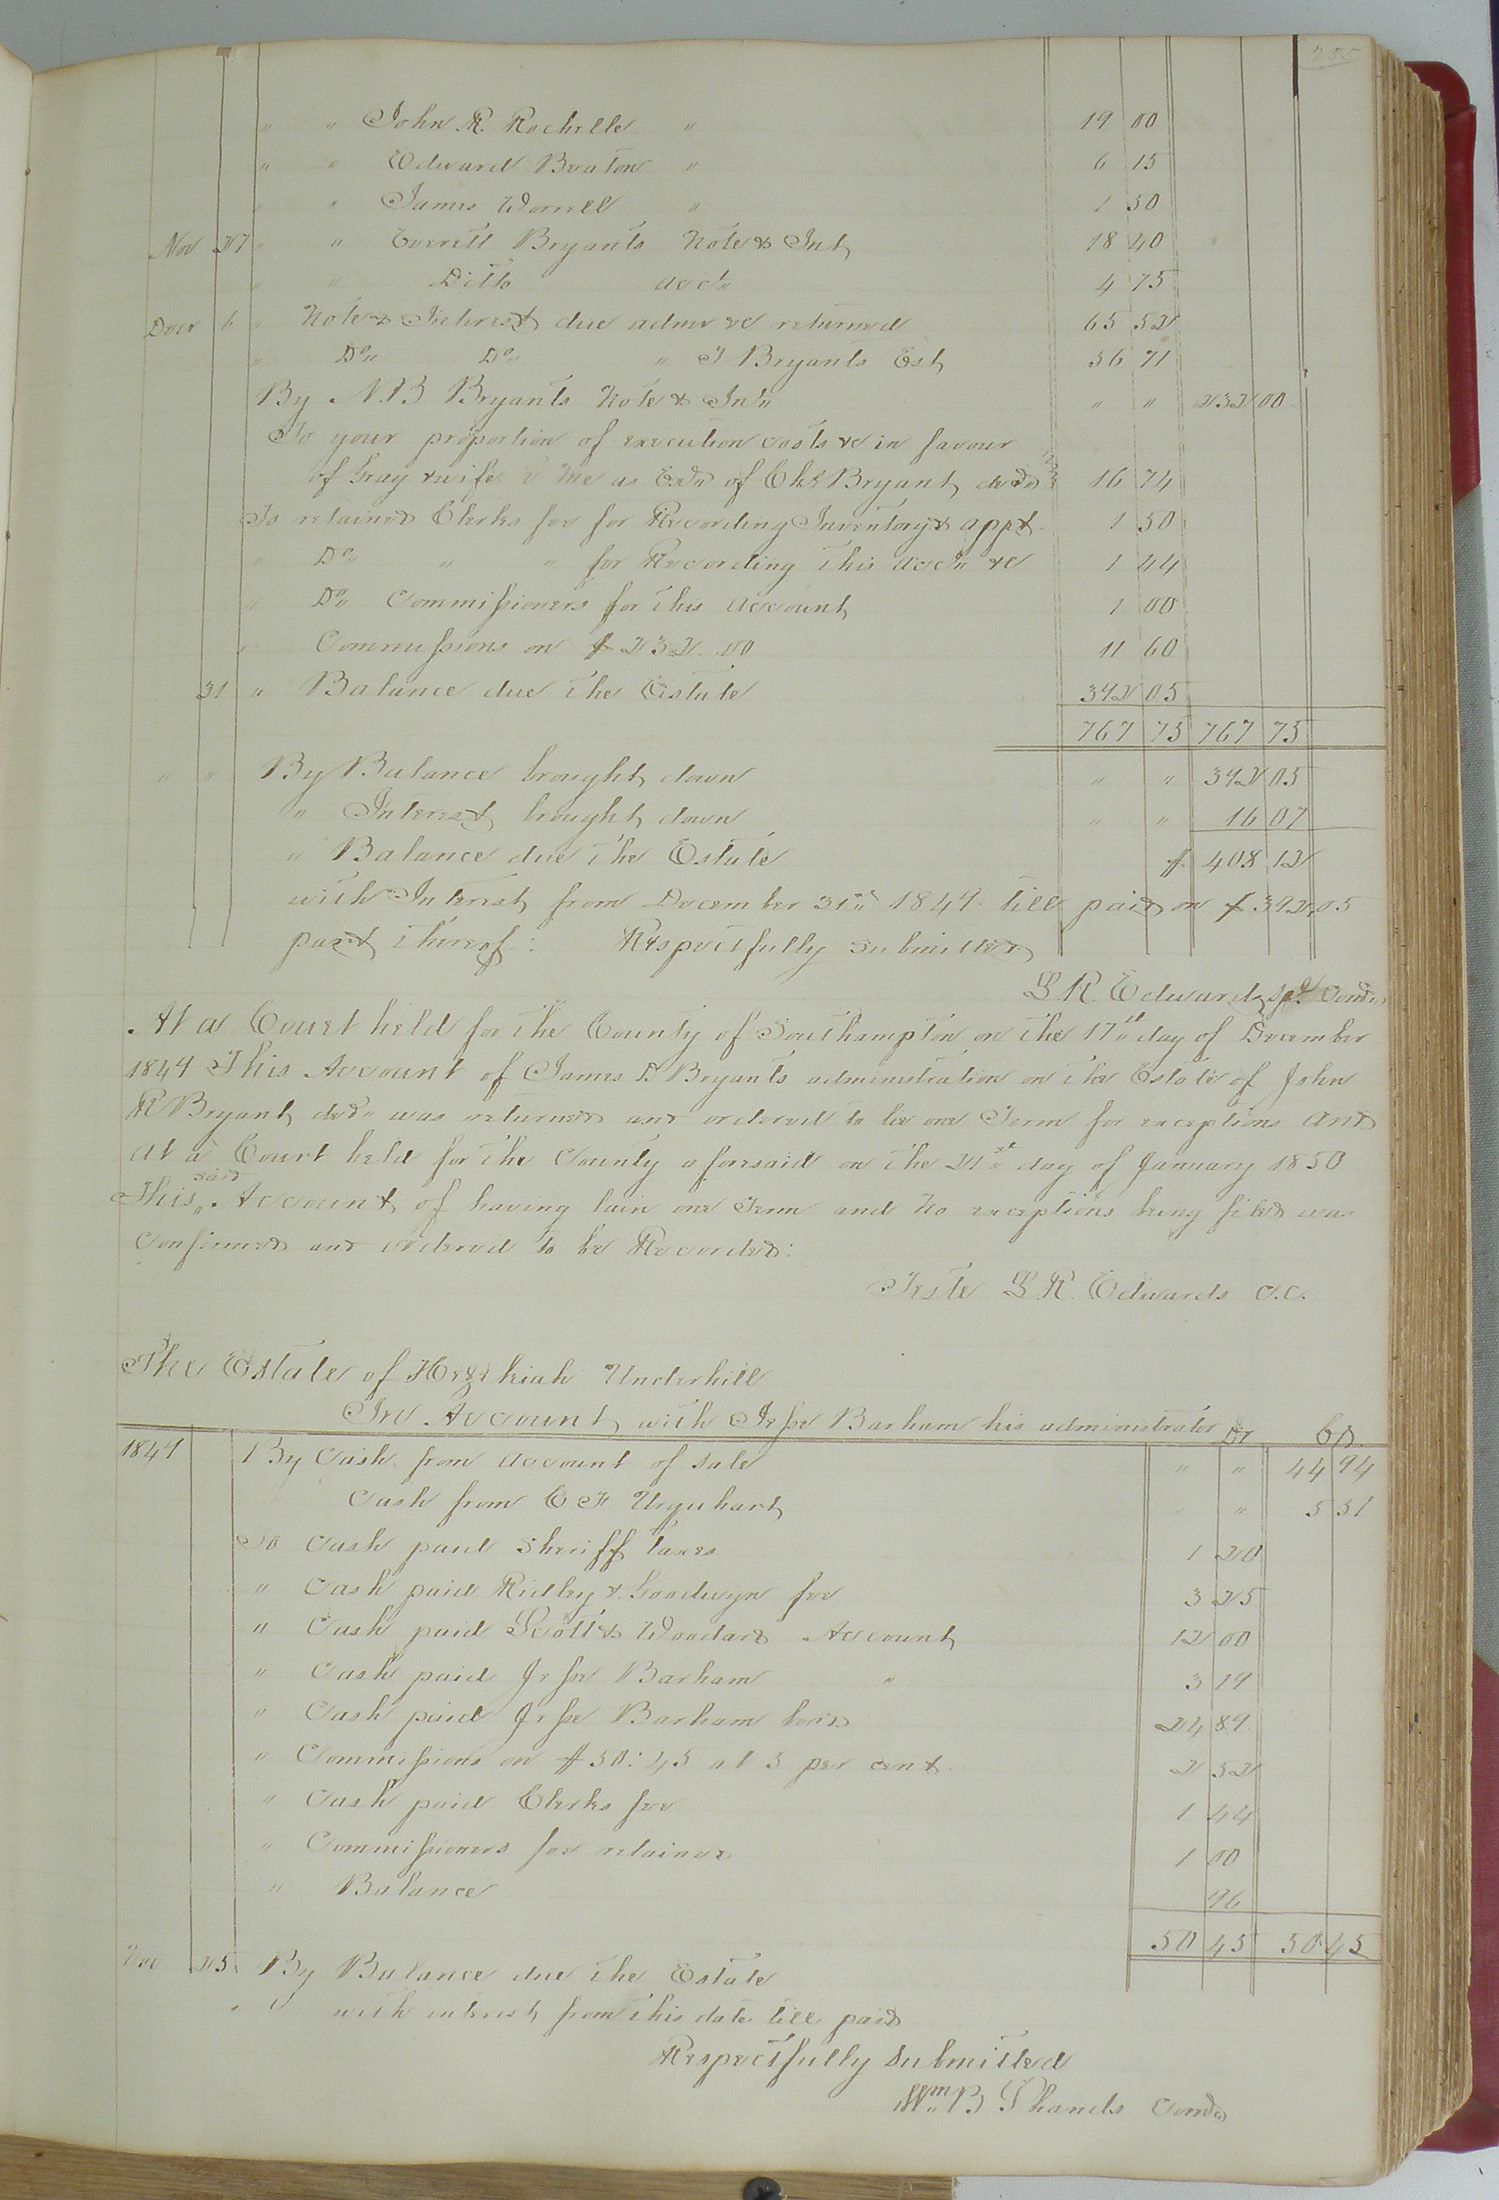 255
" " John R. Rochelle " 19 00
" " Edward Beaton " 6 15
" " James Worrell " 1 50
Nov 27 " " Everitt Bryants Note & Int 18 40
" " Ditto acct 4 75
Decr 6 " Note & Interest due admr &c returned 65 52
" Do Do " J Bryants Est 36 71
By N.B Bryants Note & Int " " 232 00
To your proportion of execution costs &c in favour
of Gray & wife v me as Exr of Chs Bryant decd 16 74
To retained Clerks fee for Recording Inventory & appt 1 50
" Do " " for Recording this acct &c 1 44
" Do Commissioners for this account 1 00
" Commissions on $232.00 11 60
31 " Balance due the Estate 392 05
767 75 767 75
" " By Balance brought down " " 392 05
" Interest brought down " " 16 07
" Balance due the Estate $ 408 12
with Interest from December 31st 1849 till paid on $392.05
part thereof: Respectfully submitted
L R Edwards Spl Comr
At a Court held for the County of Southampton on the 17th day of December
1849 This Account of James D Bryants administration on the Estate of John
R Bryant decd was returned and ordered to lie one Term for exceptions And
at a Court held for the County aforesaid on the 21st day of January 1850
This said Account of having lain one Term and no exceptions being filed was
Confirmed and ordered to be Recorded:
Teste L R. Edwards C.C.
The Estate of Hezekiah Underhill
In Account with Jesse Barham his administrator Dr Cr.
1849 By Cash from account of sale " " 44 94
Cash from C F Urquhart " " 5 51
To Cash paid Sheriff taxes 1 20
" Cash paid Ridley & Goodwyn fee 3 25
" Cash paid Scott & Woodard Account 12 00
" Cash paid Jesse Barham " 3 19
" Cash paid Jesse Barham 24 89
" Commissions on $50:45 at 5 per cent 2 52
" Cash paid Clerks fee 1 44
" Commissioners fee retained 1 00
" Balance 96
50 45 50 45
25 By Balance due the Estate
" " with interest from this date till paid
Respectfully submitted
Wm B Shands Comr